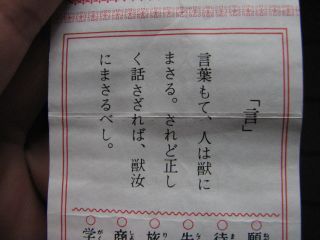 「言」
言葉もて、人は獣に
まさる。されど正し
く話さざれば、獣汝
にまさるべし。
願
待
失
旅
商
学